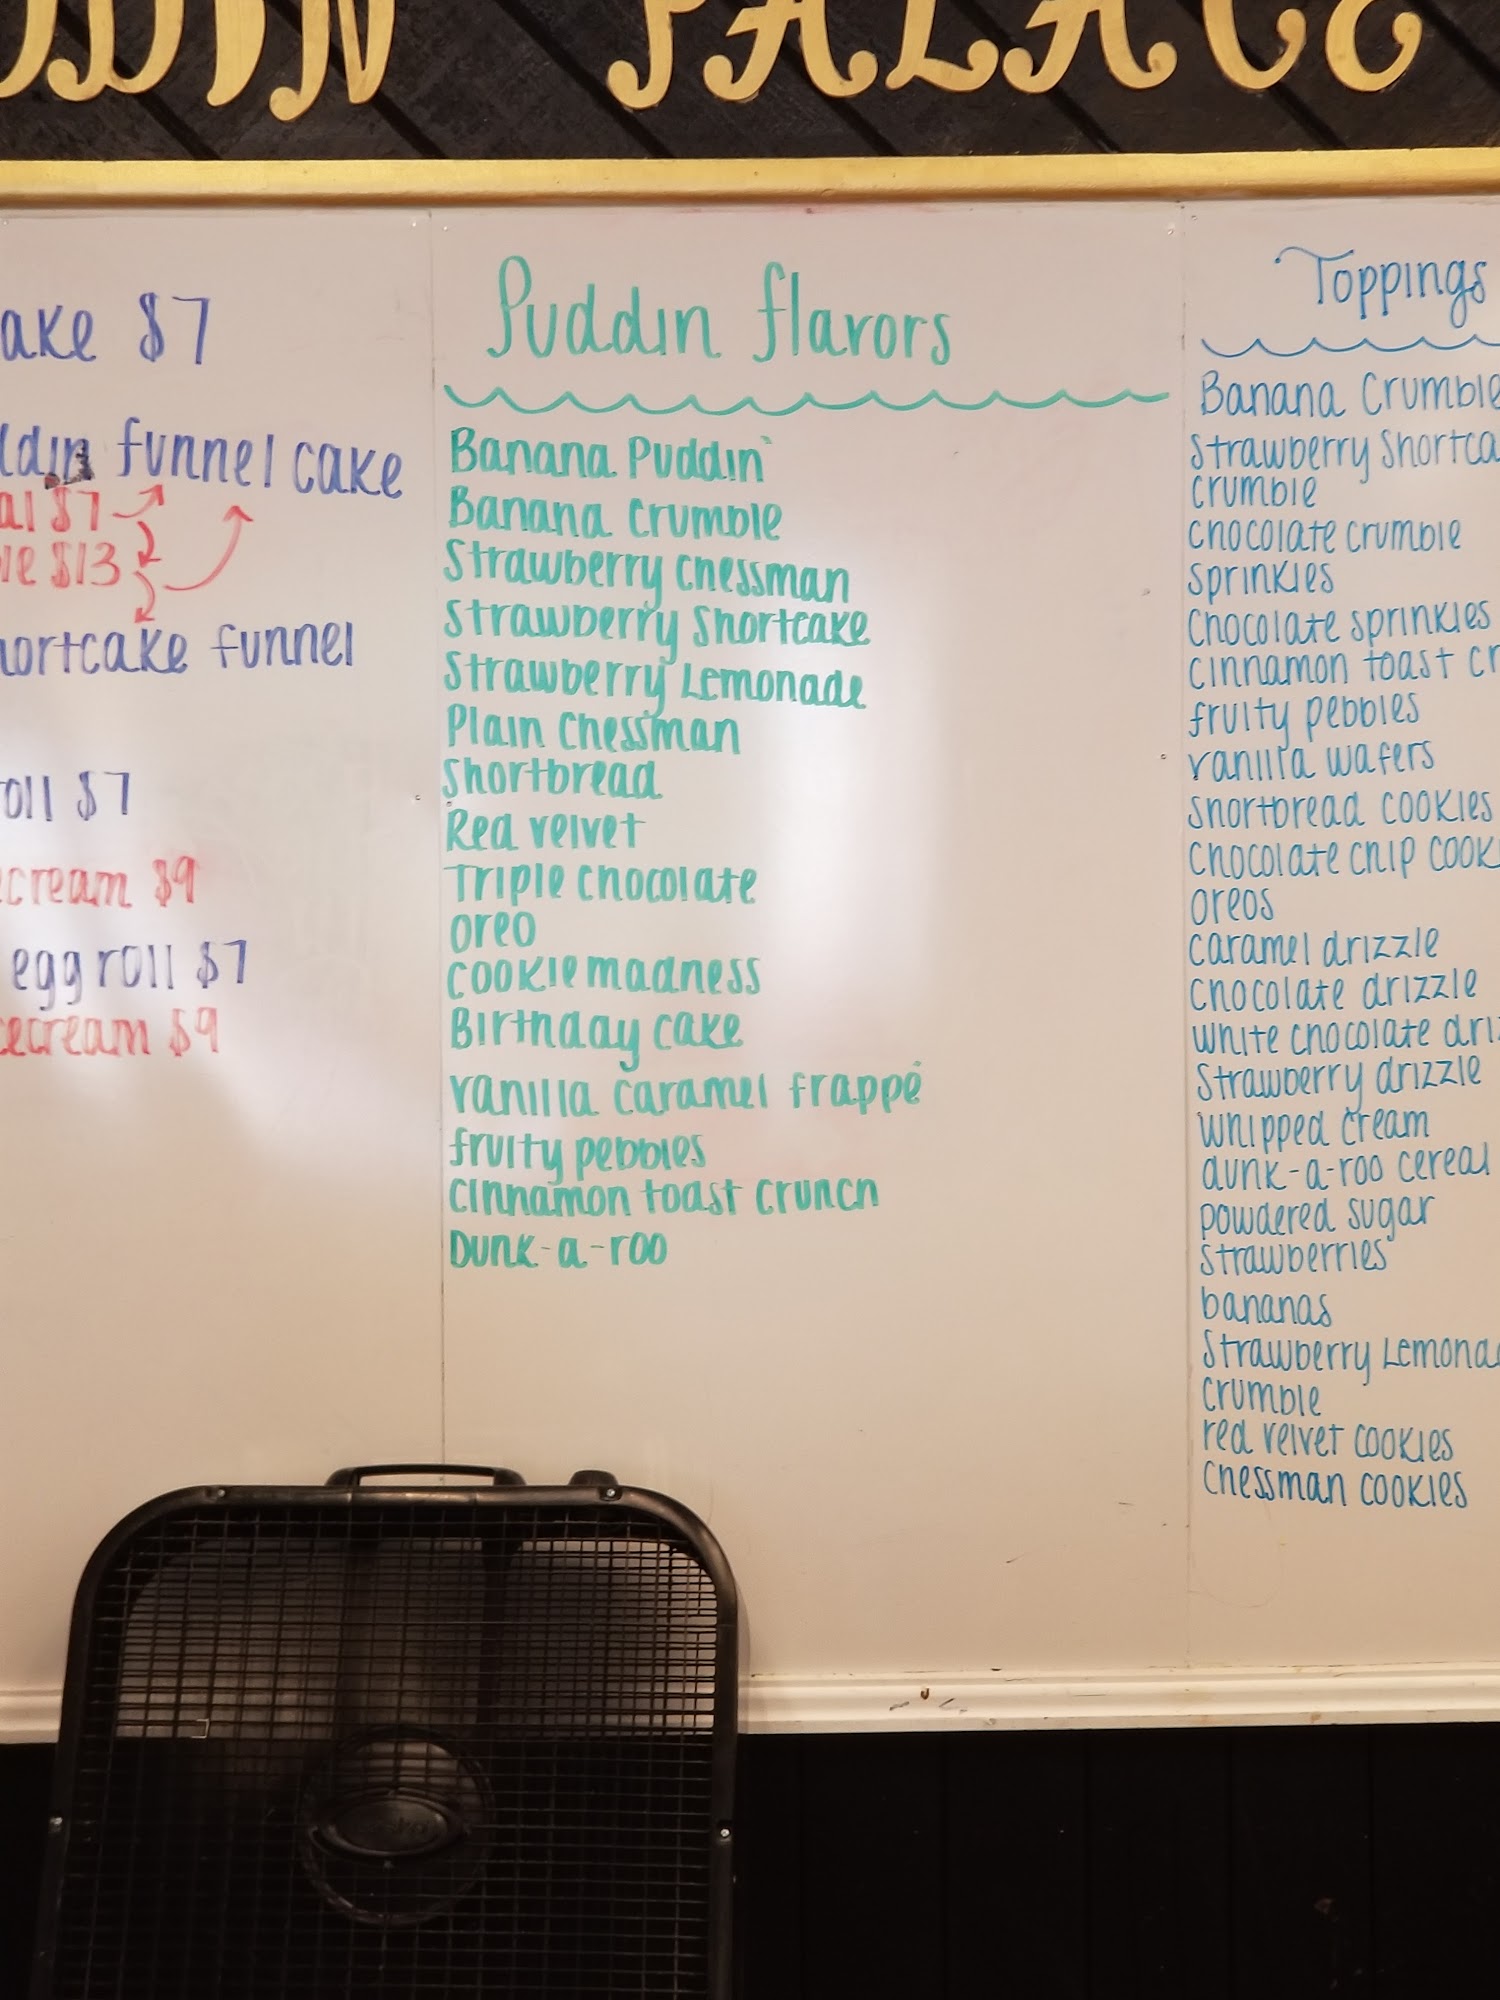 PALACE
ake $7
funnel cake
$7
$13
hortcake funnel
oll $7
cream $9
egg roll $7
cecream $9
Puddin flavors
Banana Puddin'
Banana Crumble
Strawberry Chessman
Strawberry Shortcake
Strawberry Lemonade
Plain Chessman
Shortbread
Red velvet
Triple chocolate
oreo
cookie madness
Birthday cake
vanilla caramel frappé
fruity pebbles
cinnamon toast crunch
Dunk-a-roo
Toppings
Banana Crumble
Strawberry Shortca
crumble
chocolate crumble
sprinkles
chocolate sprinkles
cinnamon toast cr
fruity pebbles
vanilla wafers
shortbread cookies
chocolate chip cook
oreos
caramel drizzle
chocolate drizzle
white chocolate driz
Strawberry drizzle
whipped cream
dunk-a-roo cereal
powdered sugar
strawberries
bananas
Strawberry Lemona
crumble
red velvet cookies
chessman cookies